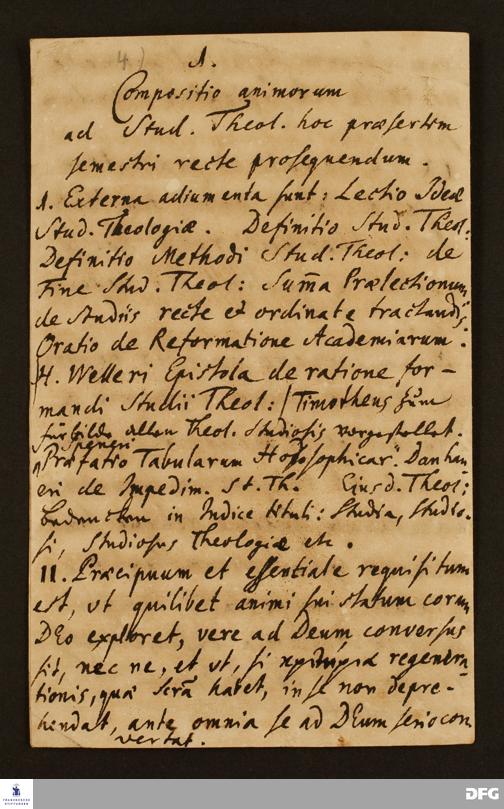 4)
A.
Compositio animorum
ad Stud. Theol. hoc præsertim
semestri recte prosequendum.
1. Externa adiumenta sunt: Lectio Ideæ
Stud. Theologiæ. Definitio Stud. Theol:
Definitio Methodi Stud. Theol: de
Fine Stud. Theol: Sum̃a Prælectionum
de studiis recte et ordinate tractandis;
Oratio de Reformatione Academiarum.
H. Welleri Epistola de ratione for-
mandi Studii Theol: / Timotheus zum
fürbilde allen Theol. Studiosis vorgestellet.
Speneri
Præfatio Tabularum Hodosophicar. Danhau
eri de Impedim. St. Th. Ejusd. Theol:
bedencken in Indice tituli: Studia, Studio-
si, Studiosus Theologiæ etc.
II. Præcipuum et essentiale requisitum
est, ut quilibet animi sui statum coram
DEo exploret, vere ad Deum conversus
sit, nec ne, et ut, si κριτήρια regenera
tionis, quæ Scrã habet, in se non depre-
hendat, ante omnia se ad DEum serio con
vertat.
FRANCKESCHE
STIFTUNGEN
DFG